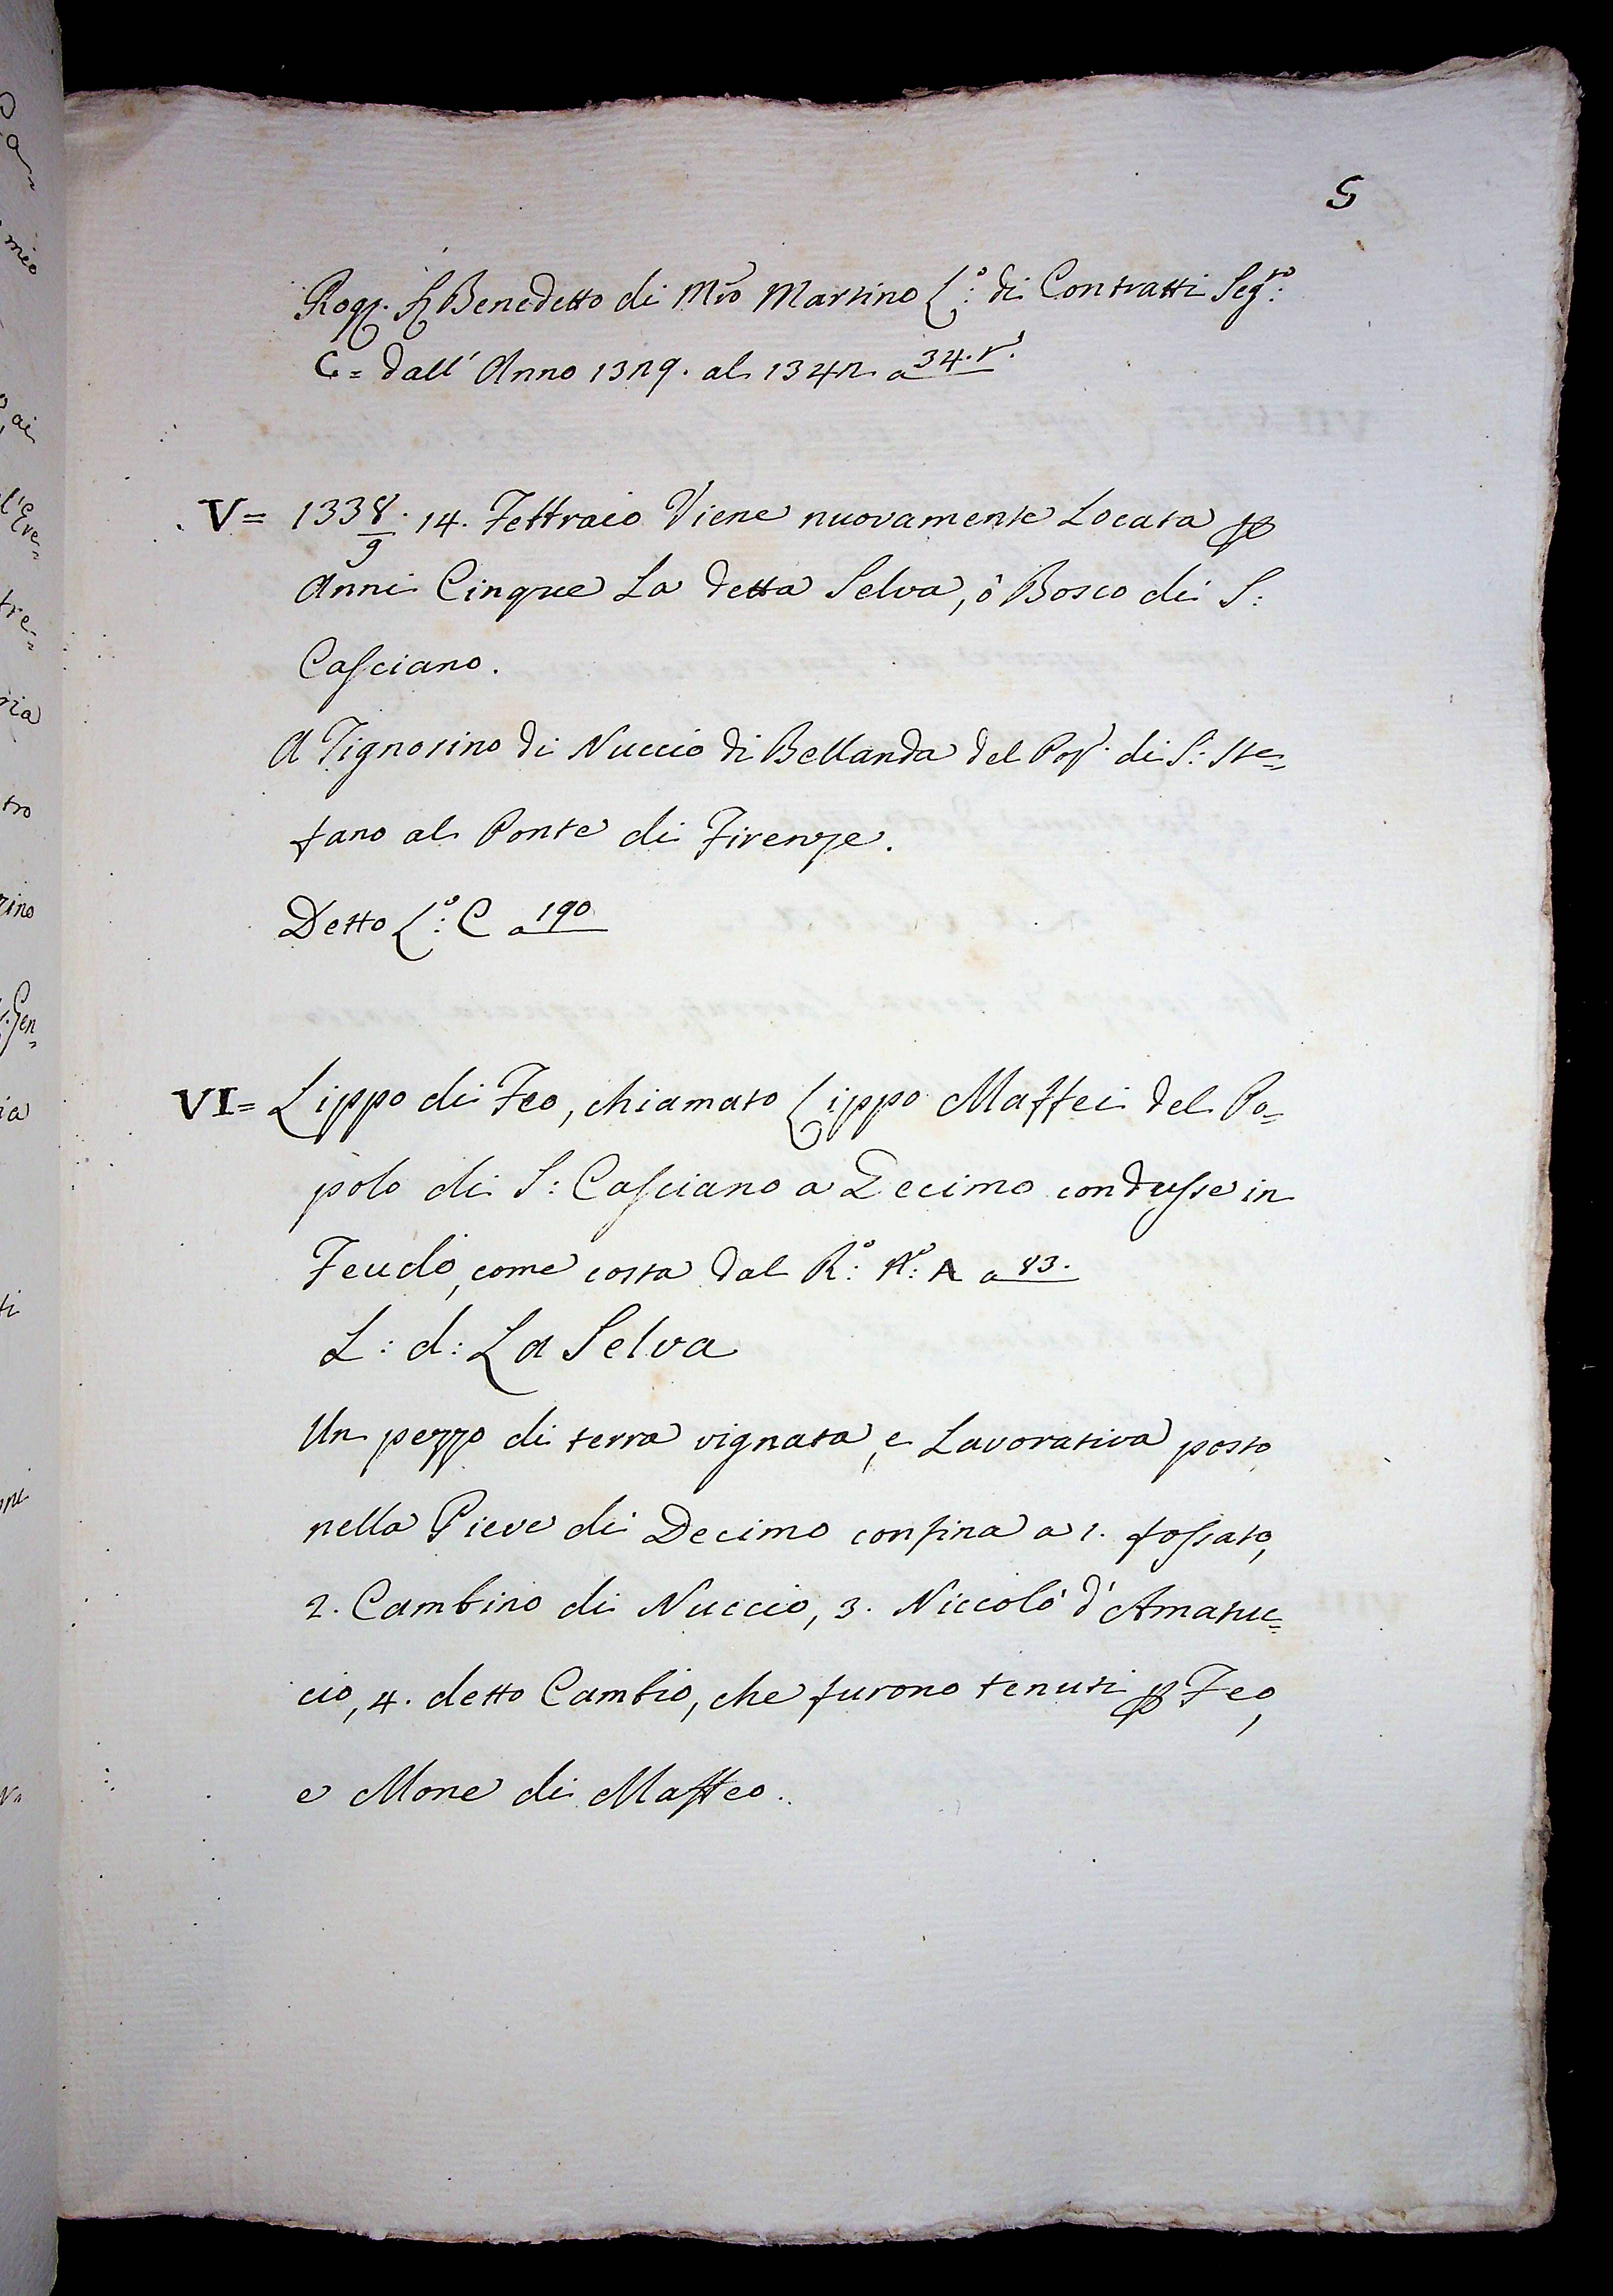 5
Rogg. Sr Benedetto di Mro Martino L.º: di Contratti Seg.to:
C= dall' Anno 1329. al 1342. a 34. r.
V= 1338/9. 14. Febbraio Viene nuovamente Locata p
Anni Cinque La detta Selva, ò Bosco di S:
Casciano.
A Tignosino di Nuccio di Bellanda del Pop. di S: Ste=
fano al Ponte di Firenze.
Detto L.º: C a 190
VI= Lippo di Feo, chiamato Lippo Maffei del Po=
polo di S: Casciano a Decimo condusse in
Feudo, come costa dal R.º: N.º: A a 83.
L: d: La Selva
Un pezzo di terra vignata, e Lavorativa posto
nella Pieve di Decimo confina a 1. fossato,
2. Cambino di Nuccio, 3. Niccolò d'Amatuc=
cio, 4. detto Cambio, che furono tenuti p Feo,
e Mone di Maffeo.